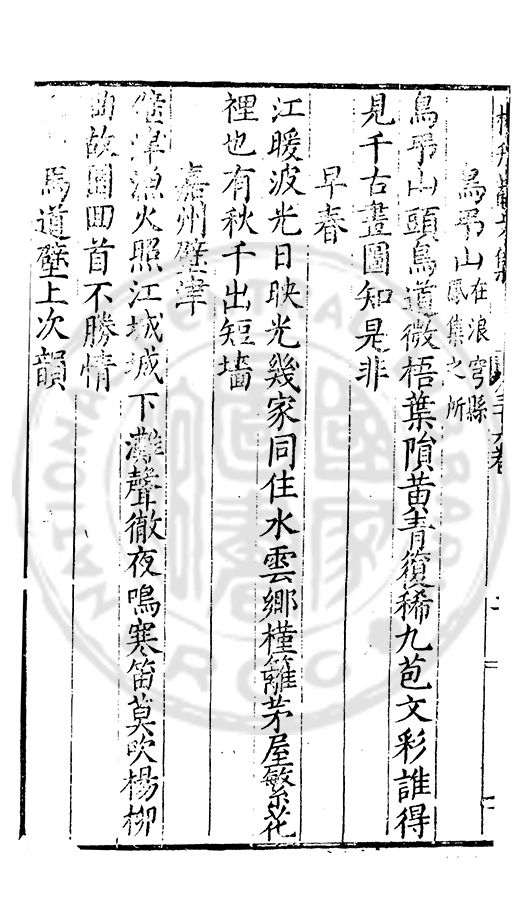 鳥弔山
在浪穹縣
鳳集之所
鳥弔山頭鳥道微梧葉隕黃青稀九苞文彩誰得
見千古畫圖知是非
早春
江暖波光日映光幾家同住水雲鄉槿籬茅屋繁花
裡也有秋千出短墻
嘉州壁津
壁津漁火照江城城下灘聲徹夜鳴寒笛莫吹楊柳
曲故園回首不勝情
馬道壁上次韻